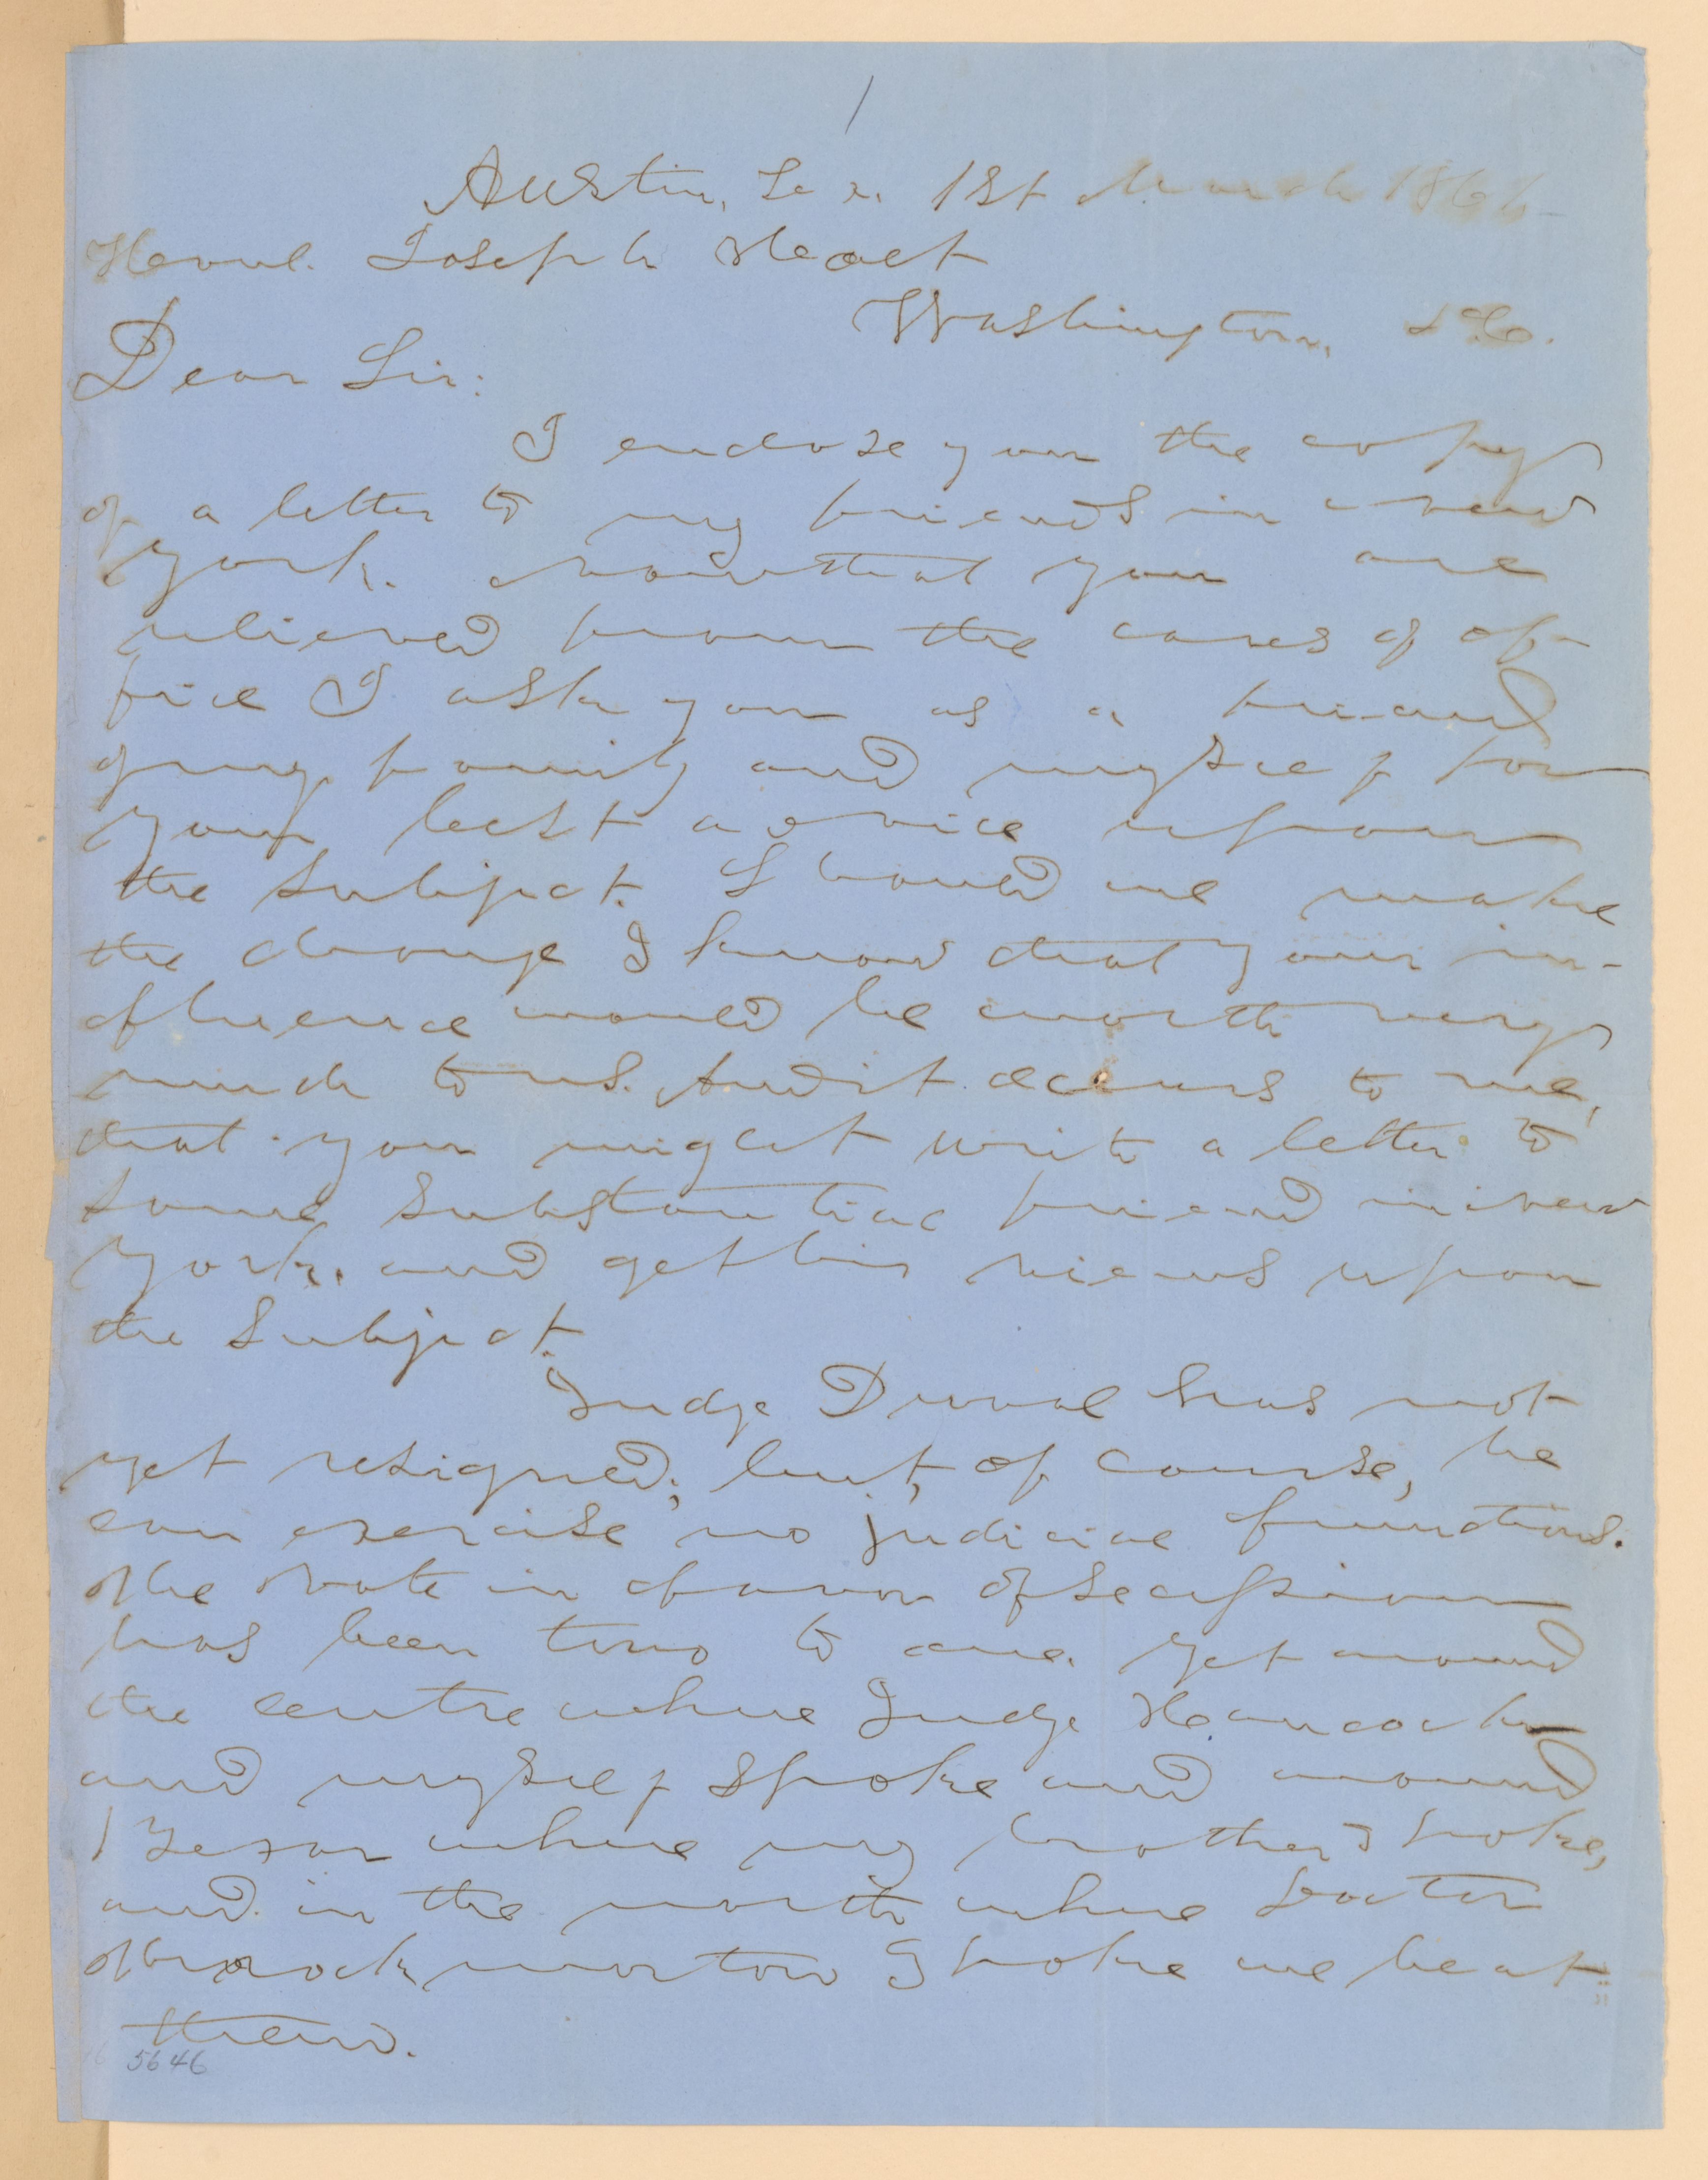 1
Austin, Tex. 1st March 1861
Honl. Joseph Holt
Washington, D.C.
Dear Sir:
I enclose you the copy
of a letter to my friends in New
York. Now that you are
relieved from the cares of of-
fice I ask you as a friend
of my family and myself for
your best advice upon
the subject. Should we make
the change I know that your in-
fluence would be worth very
much to us. And it occurs to me,
that you might write a letter to
some substantial friend in New
York. and get his views upon
the subject.
Judge Duval has not
yet resigned; but, of course, he
can exercise no judicial functions.
The vote in favor of secession
has been two to one. Yet around
the centre where Judge Hancock
and myself spoke and around
Bexar where my brother spoke,
and in the north where Doctor
Throckmorton spoke we beat
them.
5646